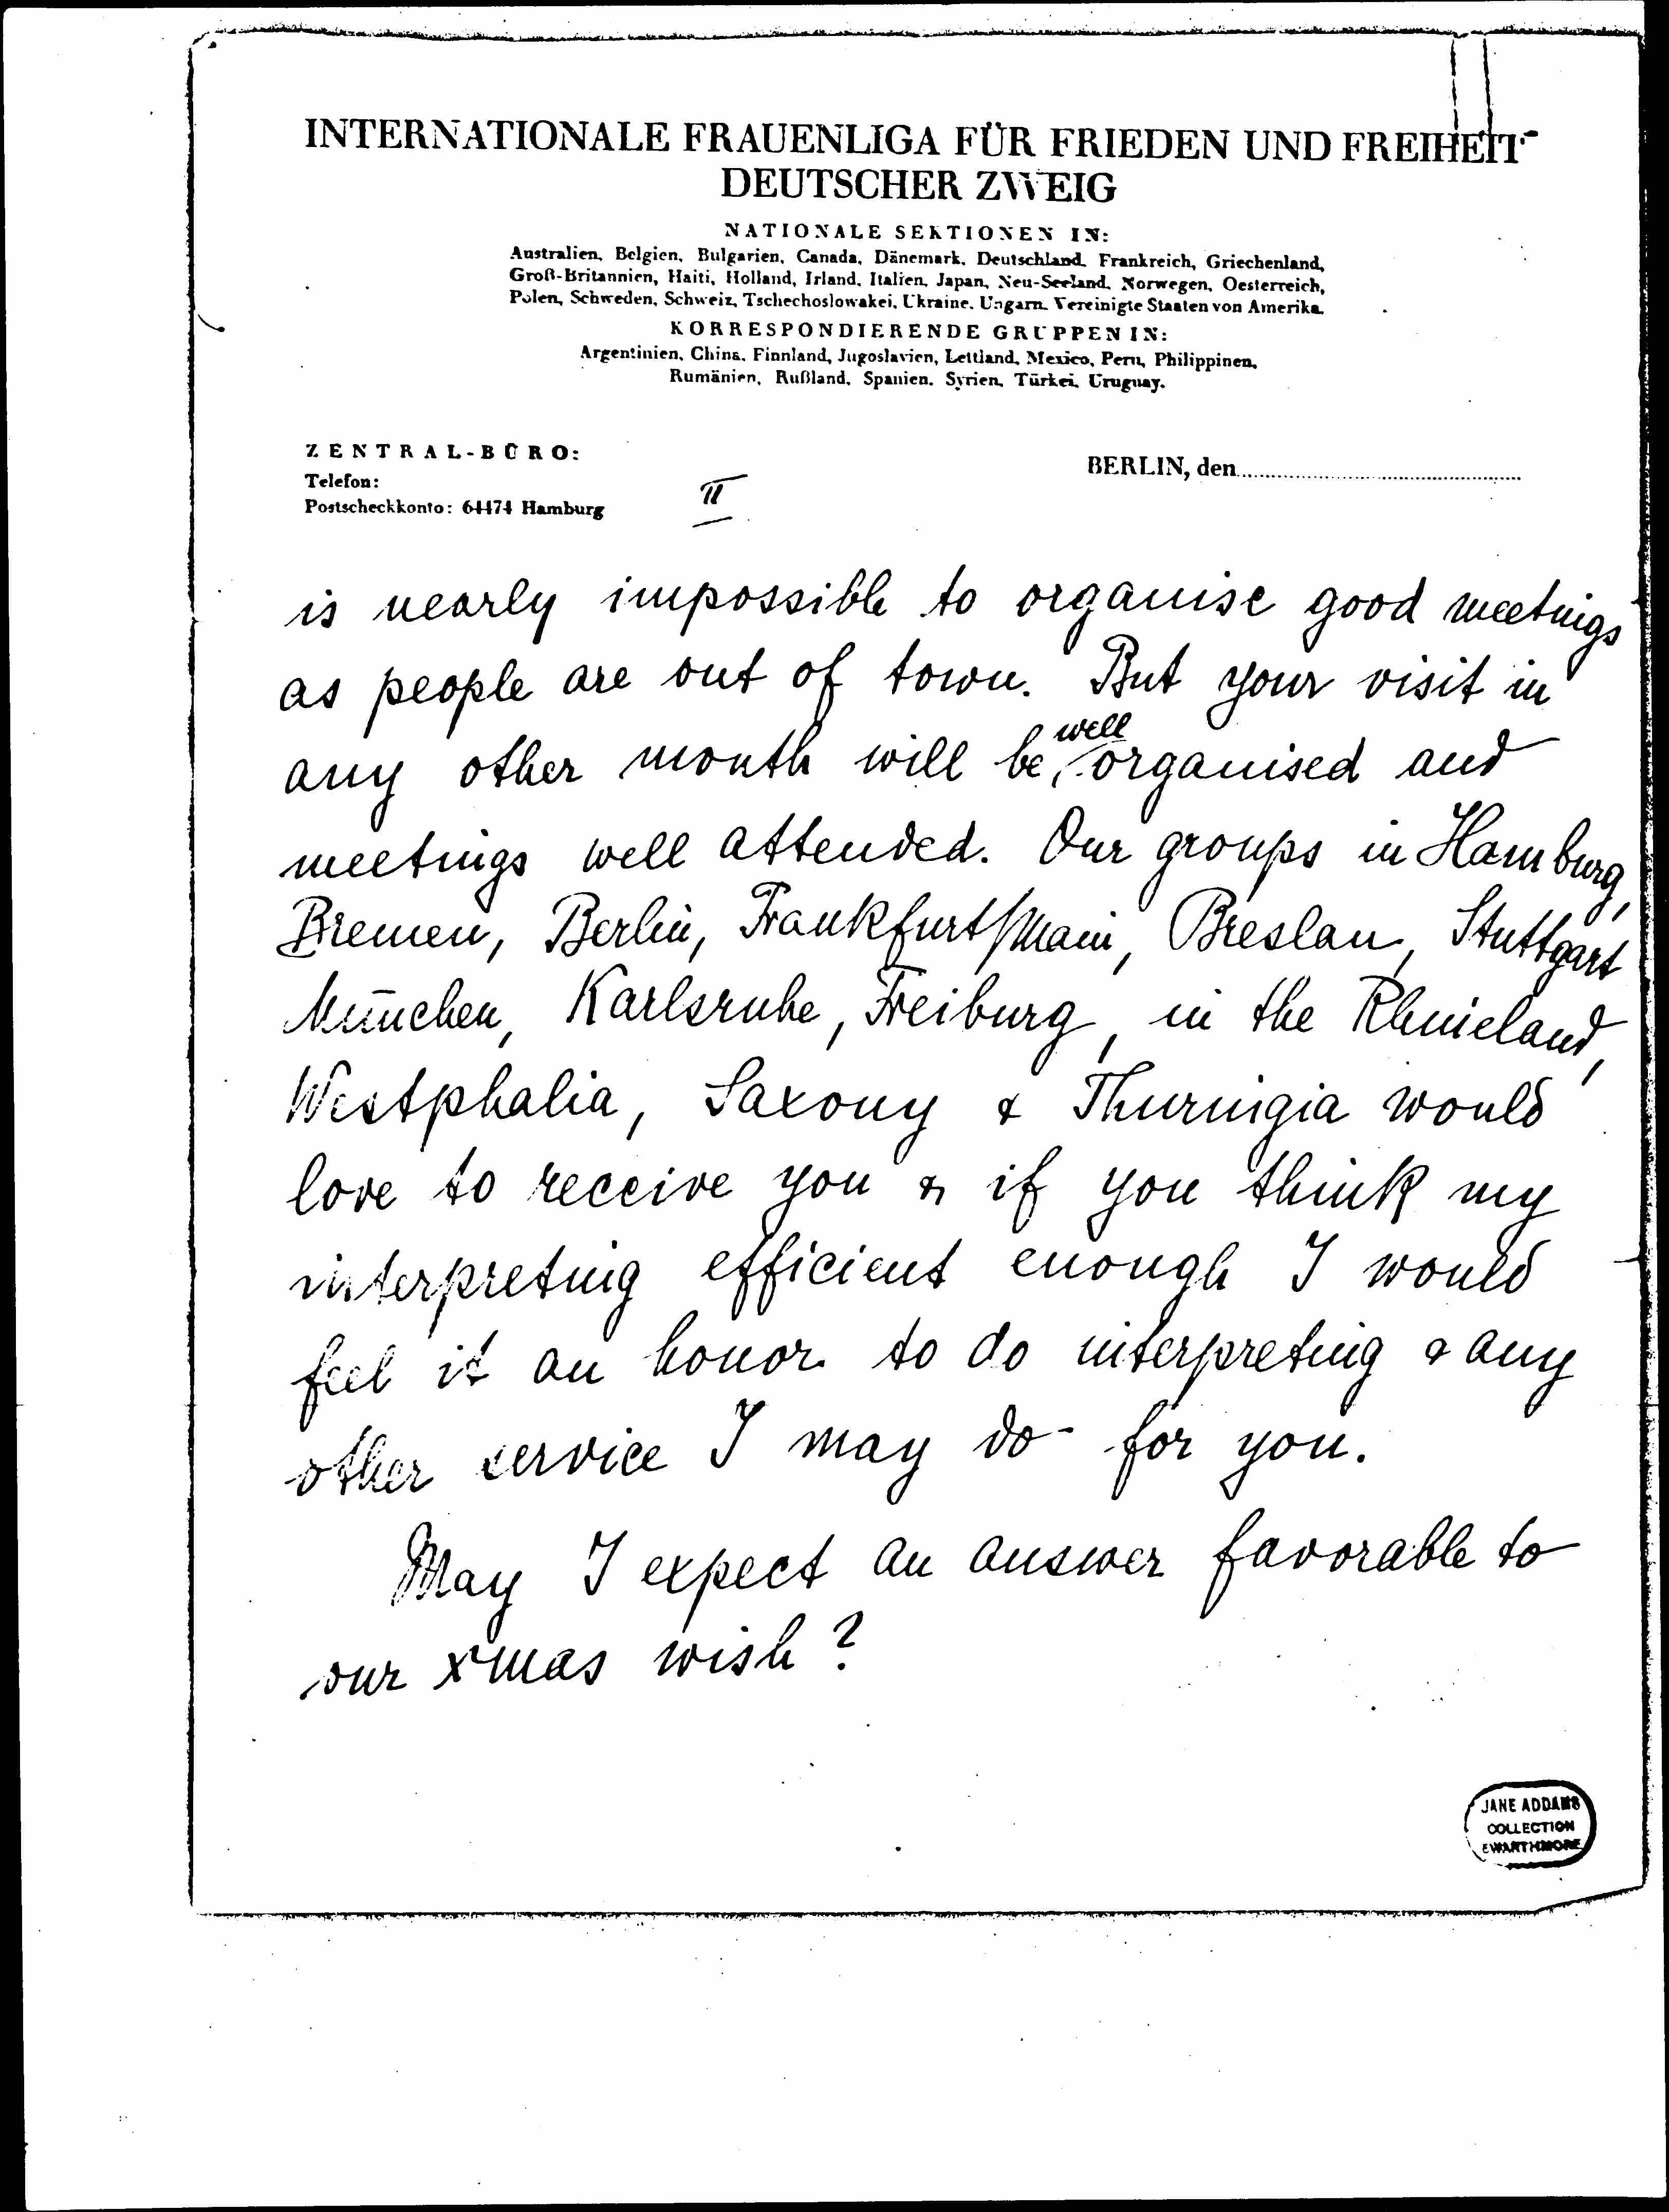 INTERNATIONALE FRAUENLIGA FÜR FRIEDEN UND FREIHEIT
DEUTSCHER ZWEIG
NATIONALE SEKTIONEN IN:
Australien, Belgien, Bulgarien, Canada, Dänemark, Deutschland, Frankreich, Griechenland,
Groß-Britannien, Haiti, Holland, Irland, Italien, Japan, Neu-Seeland, Norwegen, Oesterreich,
Polen, Schweden, Schweiz, Tschechoslowakei, Ukraine, Ungarn, Vereinigte Staaten von Amerika.
KORRESPONDIERENDE GRUPPEN IN:
Argentinien, China, Finnland, Jugoslavien, Lettland, Mexico, Peru, Philippinen,
Rumänien, Rußland, Spanien, Syrien, Türkei, Uruguay.
ZENTRAL-BÜRO:
BERLIN, den
Telefon:
Postscheckkonto: 64474 Hamburg
II
is nearly impossible to organise good meetings
as people are out of town. But your visit in
any other month will be well organised and
meetings well attended. Our groups in Hamburg,
Bremen, Berlin, Frankfurt/Main, Breslau, Stuttgart
München, Karlsruhe, Freiburg, in the Rhineland,
Westphalia, Saxony & Thuringia would
love to receive you & if you think my
interpreting efficient enough I would
feel it an honor to do interpreting & any
other service I may do for you.
May I expect an answer favorable to
our xmas wish?
JANE ADDAMS
COLLECTION
SWARTHMORE